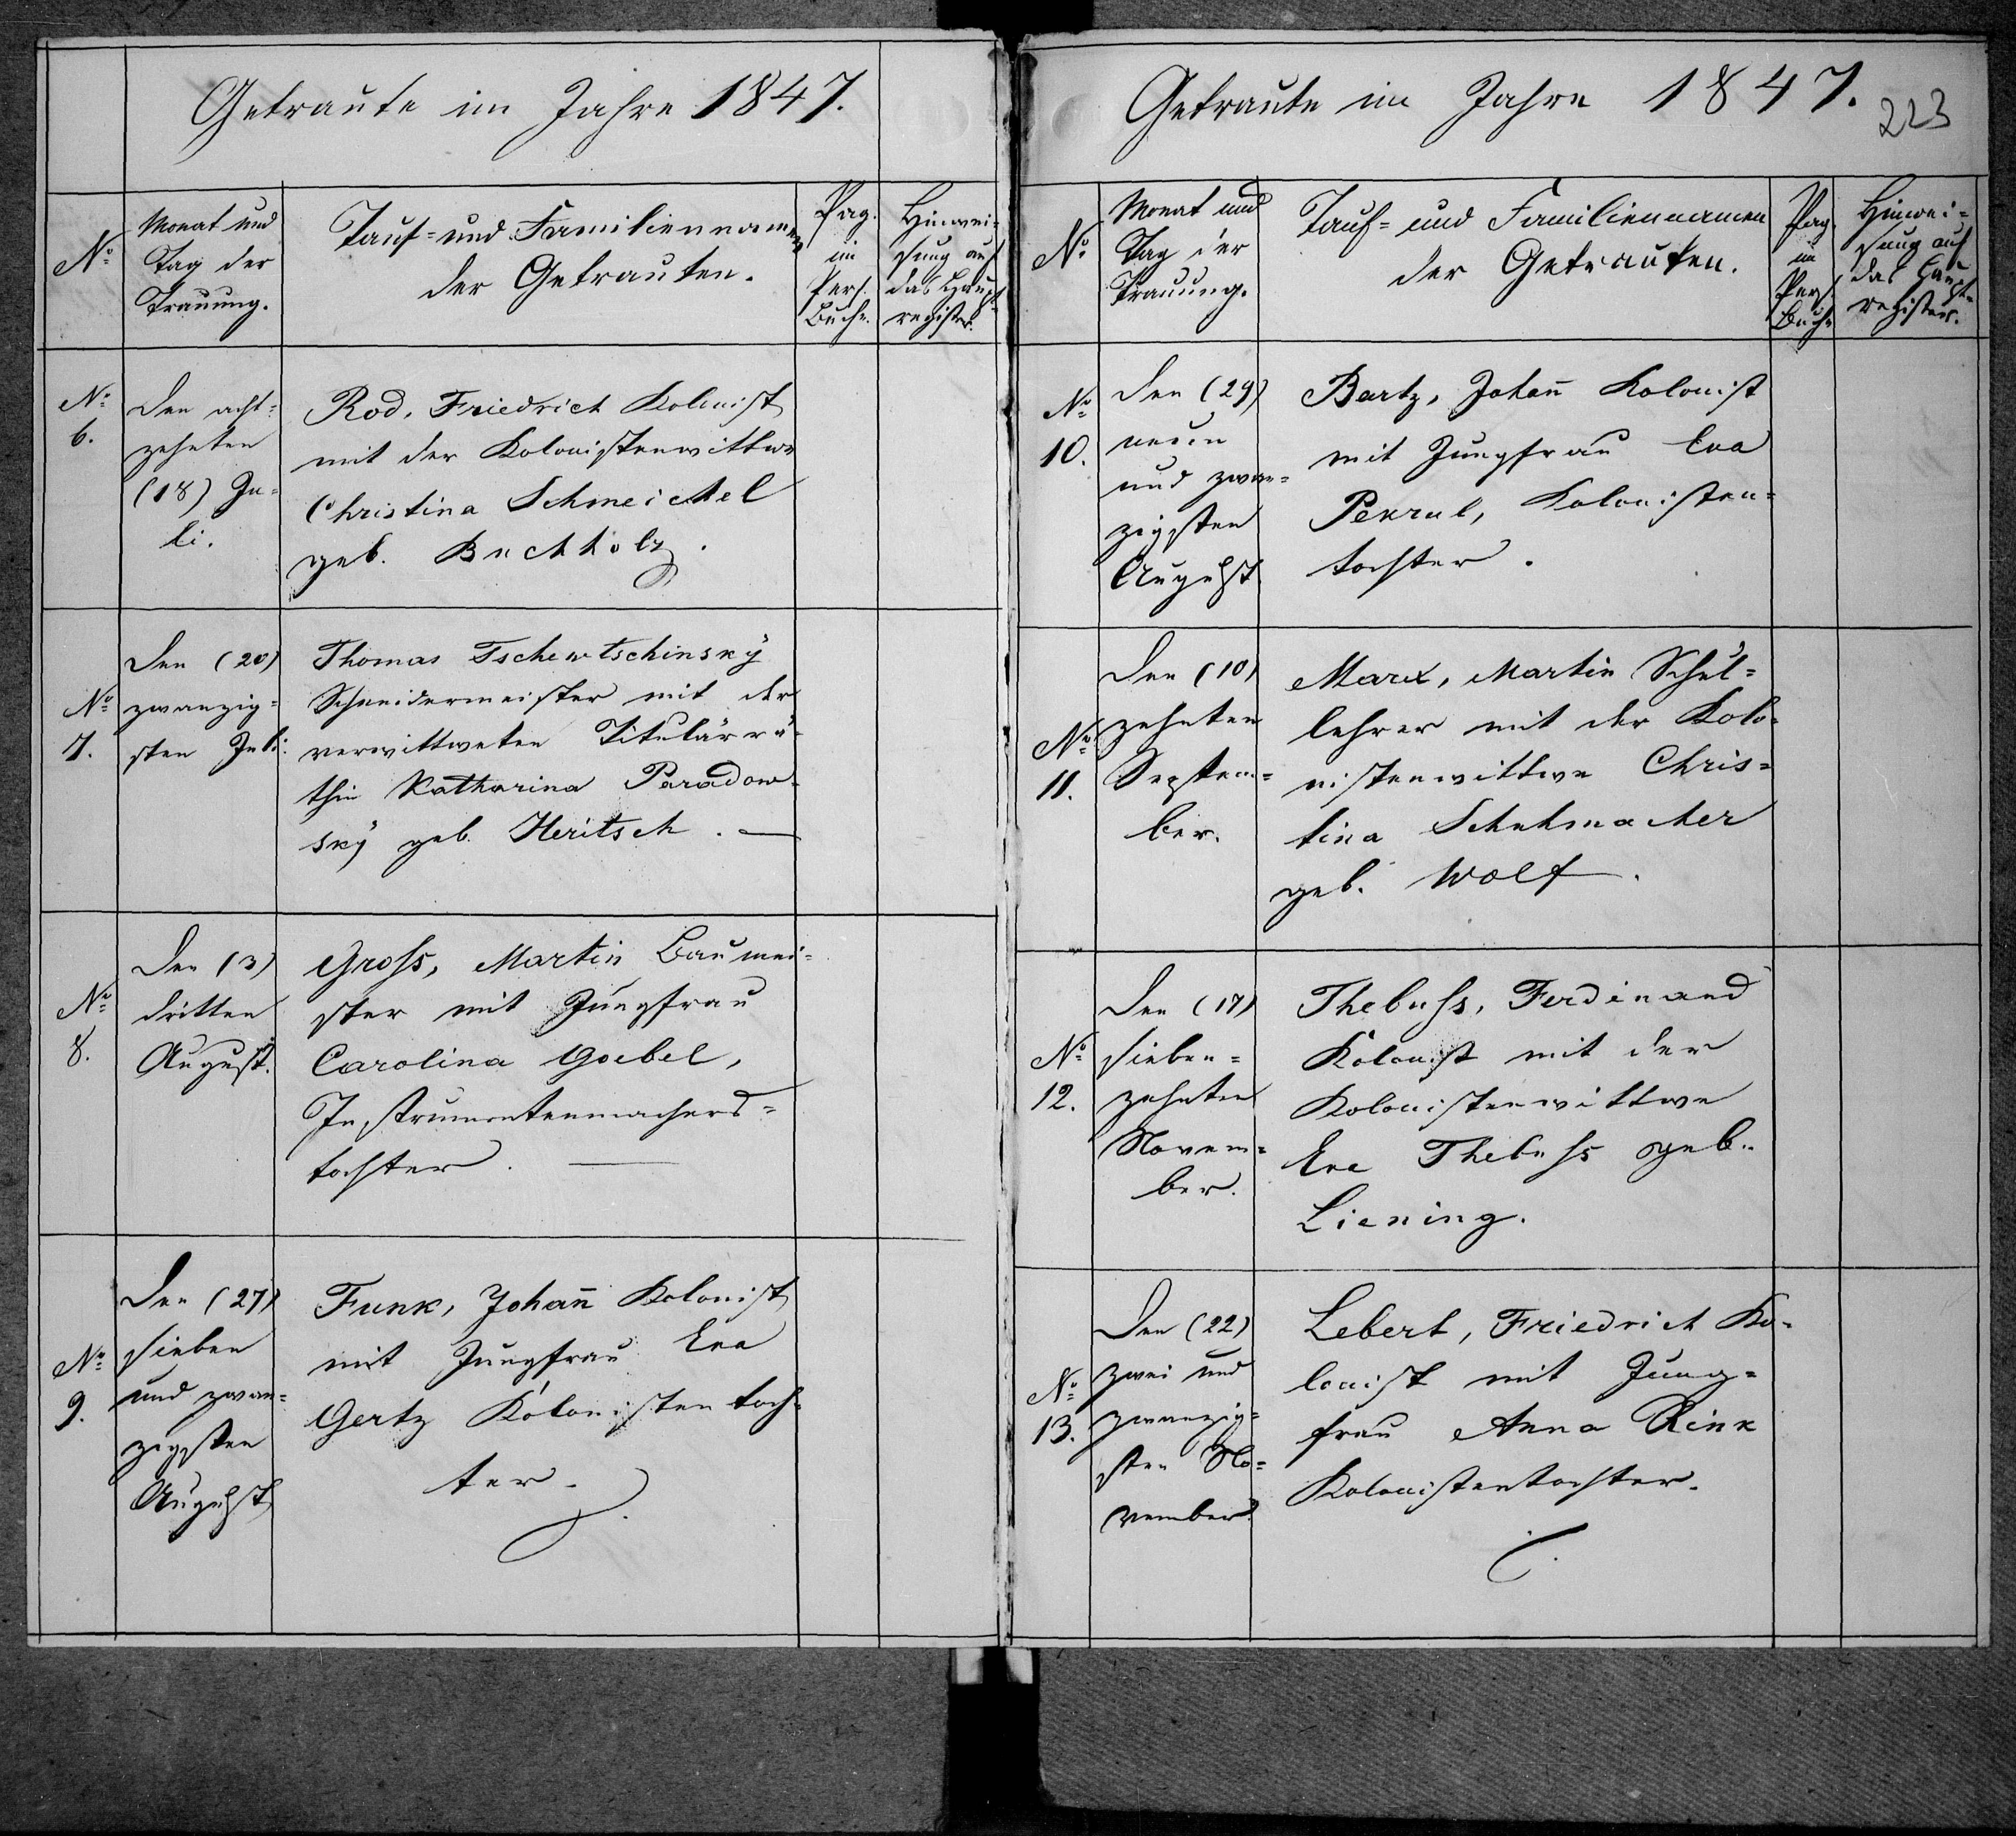 Getraute im Jahre 1847.
No
Monat und
Tag der
Trauung.
Tauf- und Familiennamen
der Getrauten.
Pag.
im
Pers.
Buche.
Hinwei-
sung auf
das Haupt-
register.
No
6.
Den acht-
zehnten
(18) Ju-
li.
Rod, Friedrich Kolonist
mit der Kolonistenwittwe
Christina Schmeichel
geb. Buchholz.
No
7.
Den (20)
zwanzig-
sten Juli.
Thomas Tschewtschinsky
Schneidermeister mit der
verwittweten Titulärrä-
thin Katharina Paradow-
sky geb. Heritsch. —
No
8.
Den (3)
dritten
August.
Gross, Martin Baumei-
ster mit Jungfrau
Carolina Goebel,
Instrumentenmachers-
tochter. —
No
9.
Den (27)
sieben
und zwan-
zigsten
August
Funk, Johañ Kolonist
mit Jungfrau Eva
Gertz Kolonistentoch-
ter.
Getraute im Jahre 1847.
223
No
Monat und
Tag der
Trauung.
Tauf- und Familiennamen
der Getrauten.
Pag.
im
Pers.
Buche
Hinwei-
sung auf
das Haupt-
register.
No
10.
Den (29)
neun
und zwan-
zigsten
August
Bartz, Johañ Kolonist
mit Jungfrau Eva
Pekrul, Kolonisten-
tochter.
No
11.
Den (10)
zehnten
Septem-
ber.
Marx, Martin Schul-
lehrer mit der Kolo-
nistenwittwe Chris-
tina Schuhmacher
geb. Wolf.
No
12.
Den (17)
sieben-
zehnten
Novem-
ber.
Thebuss, Ferdinand
Kolonist mit der
Kolonistenwittwe
Eva Thebuss geb.
Liening.
No
13.
Den (22)
zwei und
zwanzig-
sten No-
vember.
Lebert, Friedrich Ko-
lonist mit Jung-
frau Anna Rink
Kolonistentochter.